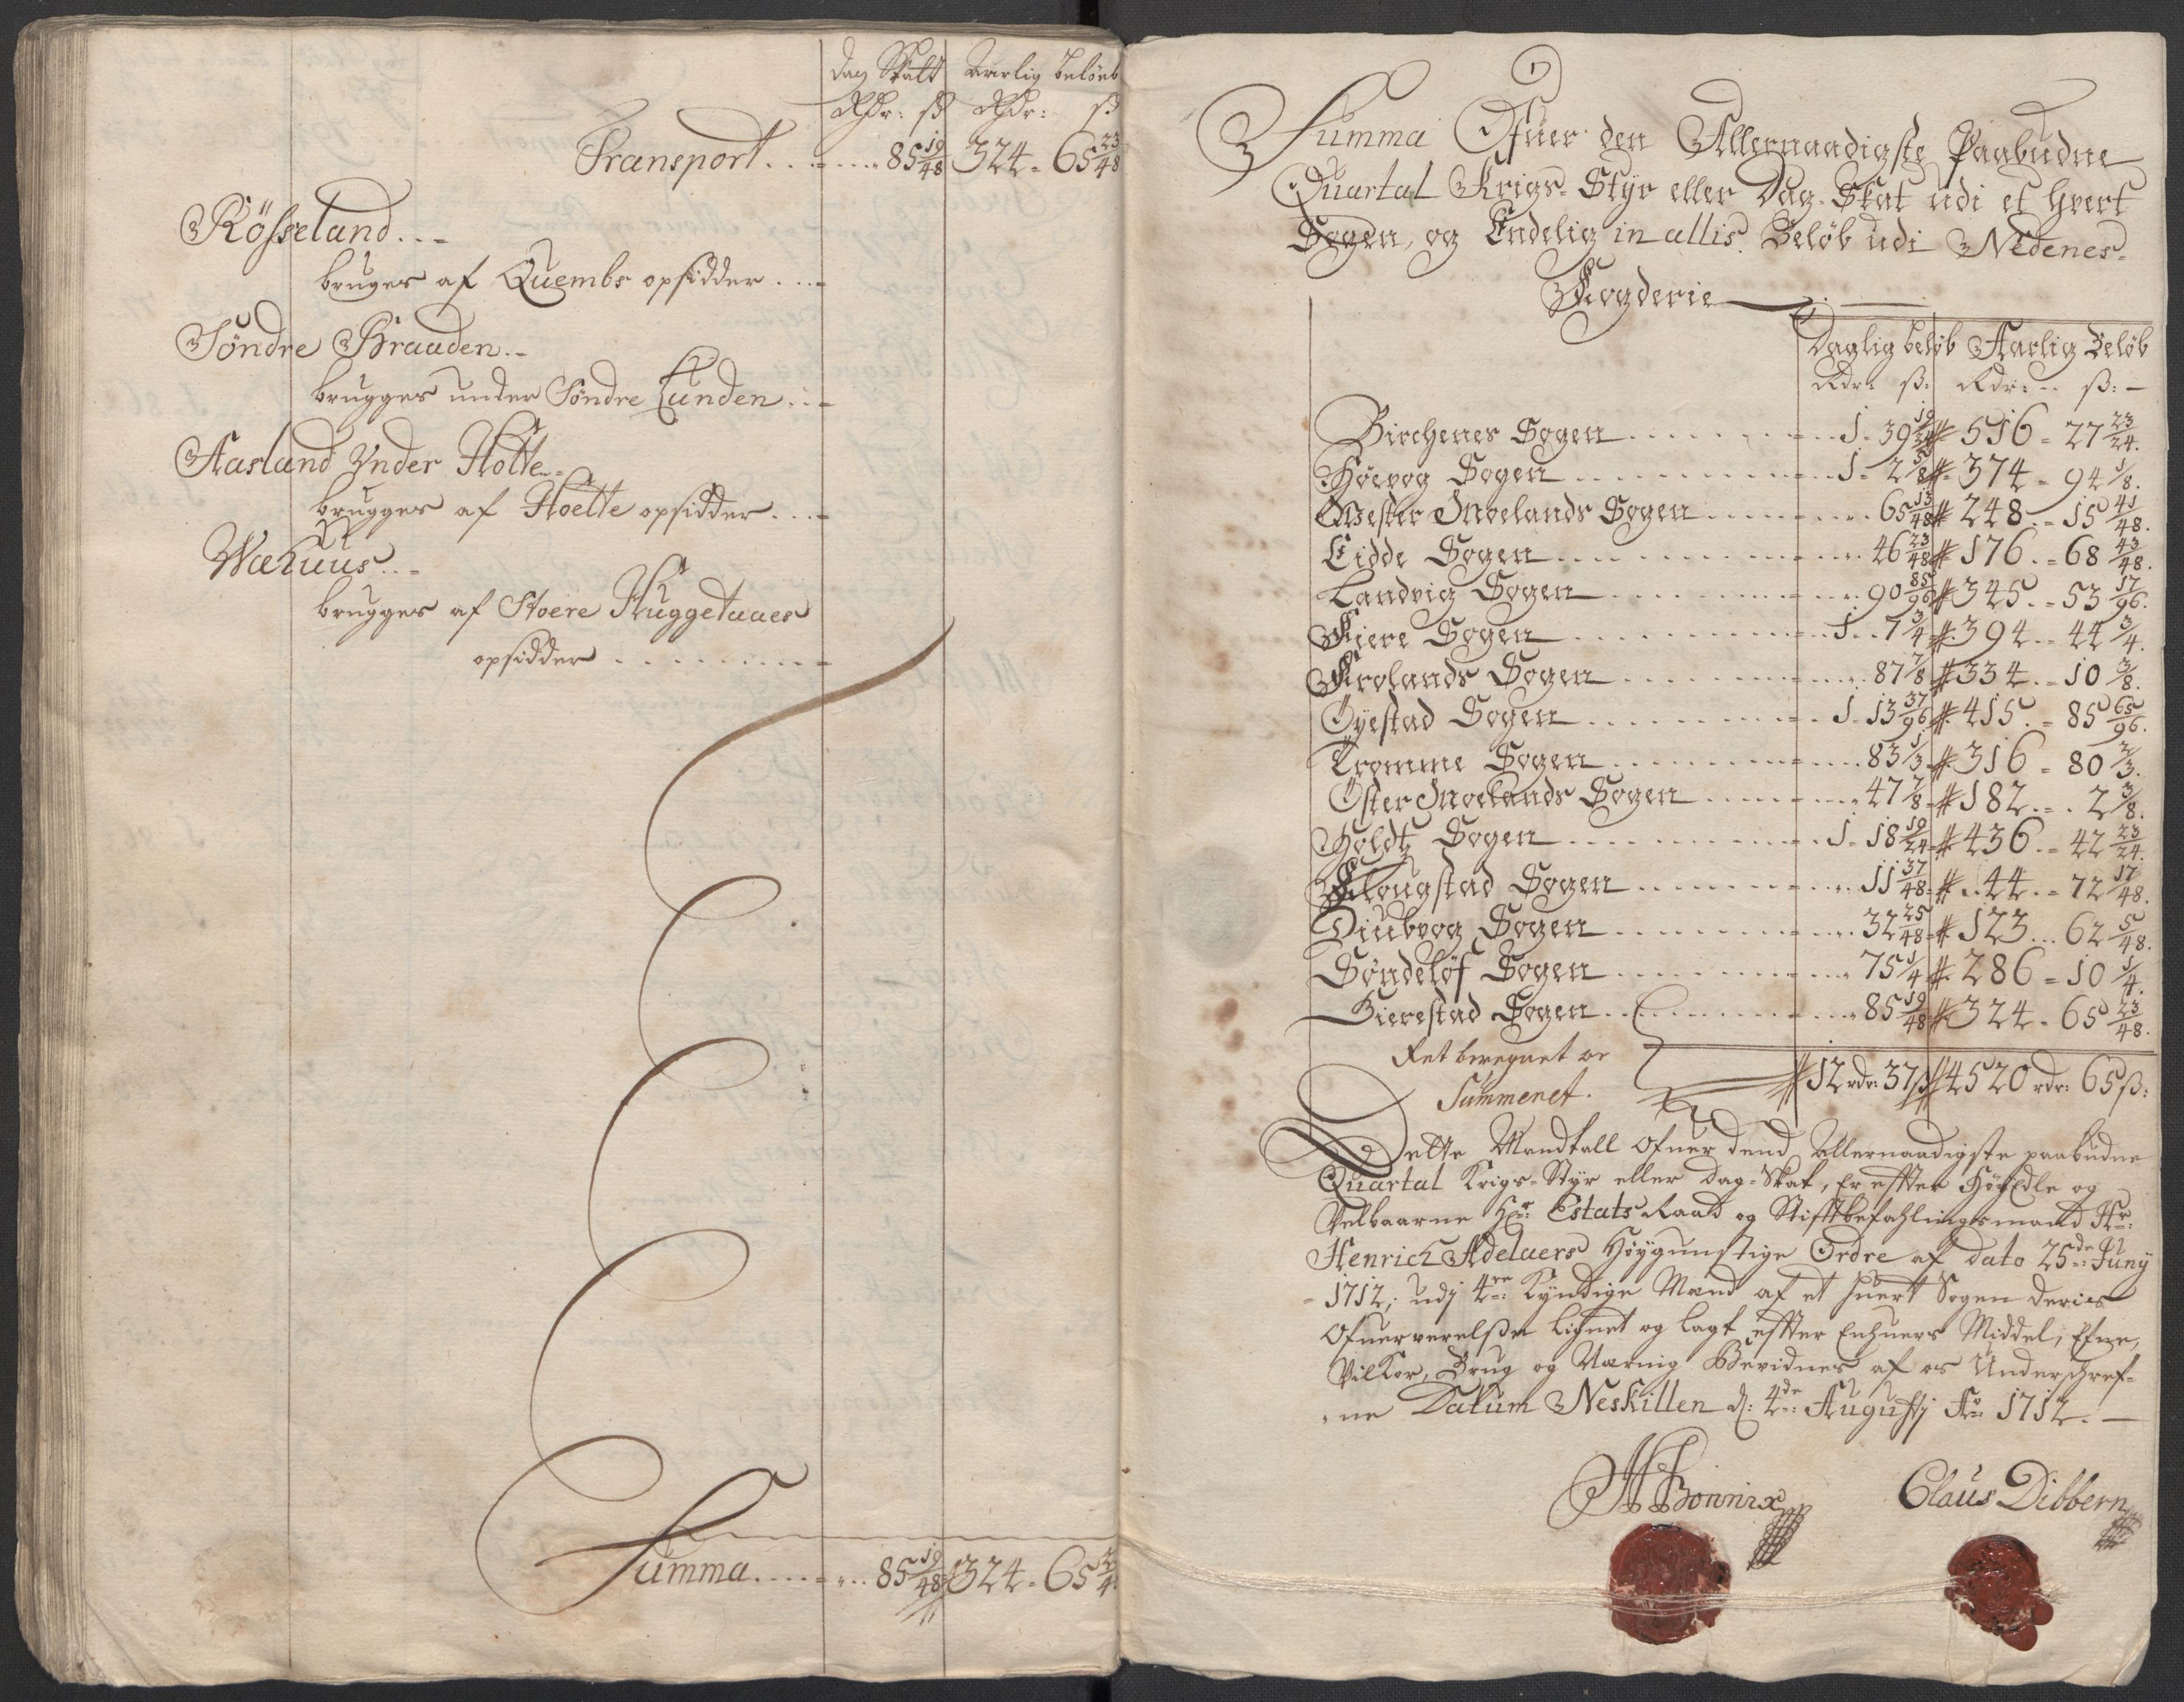 Dag Skatt Aarlig beløb
Rdr: ß Rdr: ß
Transport . . . 85 19/48 324 - 65 23/48
Rösseland . . -
bruges af Quembs opsidder . . . -
Söndre Braaden . -
brugges under Söndre Lunden . . -
Aasland Ynder Holte . -
brugges af Hoelte opsidder . . . -
Wæhuus . . -
brugges af Stoere Huggetaaes
opsidder . . . . . . . . . -
Summa . . . . 85 19/48 324 - 65 2
Summa Ofuer den Allernaadigste Paabudne
Quartal Krigs-Styr eller Dag-Skat udi et hvert
Sogen, og Endelig in allis Beløb udi Nedenes-
Fogderie
Daglig beløb Aarlig Beløb
Rdr: ß: Rdr: ß: -
Birchenes Sogen . . . 1 - 39 19/24 # 516 - 27 23/24.
Høevog Sogen . . . 1 - 2 5/8 # 374 - 94 1/8.
Wester Moelands Sogen . . . 65 13/48 # 248 - 15 41/48.
Eidde Sogen . . . 46 23/48 # 176 - 68 43/48.
Landvig Sogen . . . 90 85/96 # 345 - 53 17/96.
Fiere Sogen . . . 1 - 7 3/4 # 394 - 44 3/4.
Frolands Sogen . . . 87 7/8 # 334 - 10 3/8.
Øyestad Sogen . . . 1 - 13 37/96 # 415 - 85 65/96.
Tromme Sogen . . . 83 1/3 # 316 - 80 2/3.
Öster Moelands Sogen . . . 47 7/8 # 182 - 2 3/8.
Holdtz Sogen . . . 1 - 18 19/24 # 436 - 42 23/24.
Flougstad Sogen . . . 11 37/48 # 44 - 72 17/48.
Diubvog Sogen . . . 32 25/48 # 123 - 62 5/48.
Søndeløf Sogen . . . 75 1/4 # 286 - 10 1/4.
Gierestad Sogen . . . 85 19/48 # 324 - 65 23/48.
Ret beregnet oc
Summeret. # 12 rdr: 37 ß # 4520 rdr: 65 ß:
Dette Mandtall Ofuer dend Allernaadigste paabudne
Quartal Krigs-Styr eller Dag-Skat, Er effter HøyEdle og
Velbaarne Hr: Estats Raad og Stifftbefahlingsmand Hr:
Henrich Adelaers Høygunstige Ordre af dato 25de: Juny
1712, udj 4re: Kyndige Mænd af et huert Sogen deris
Ofuerværelsse lignet og lagt effter Enhuers Middel, Efne,
Vilkor, Brug og Næring Bevidnes af os Underschref-
ne Datum Neskillen d: 4de: Augustj Ao: 1712. -
Claus Dibbern